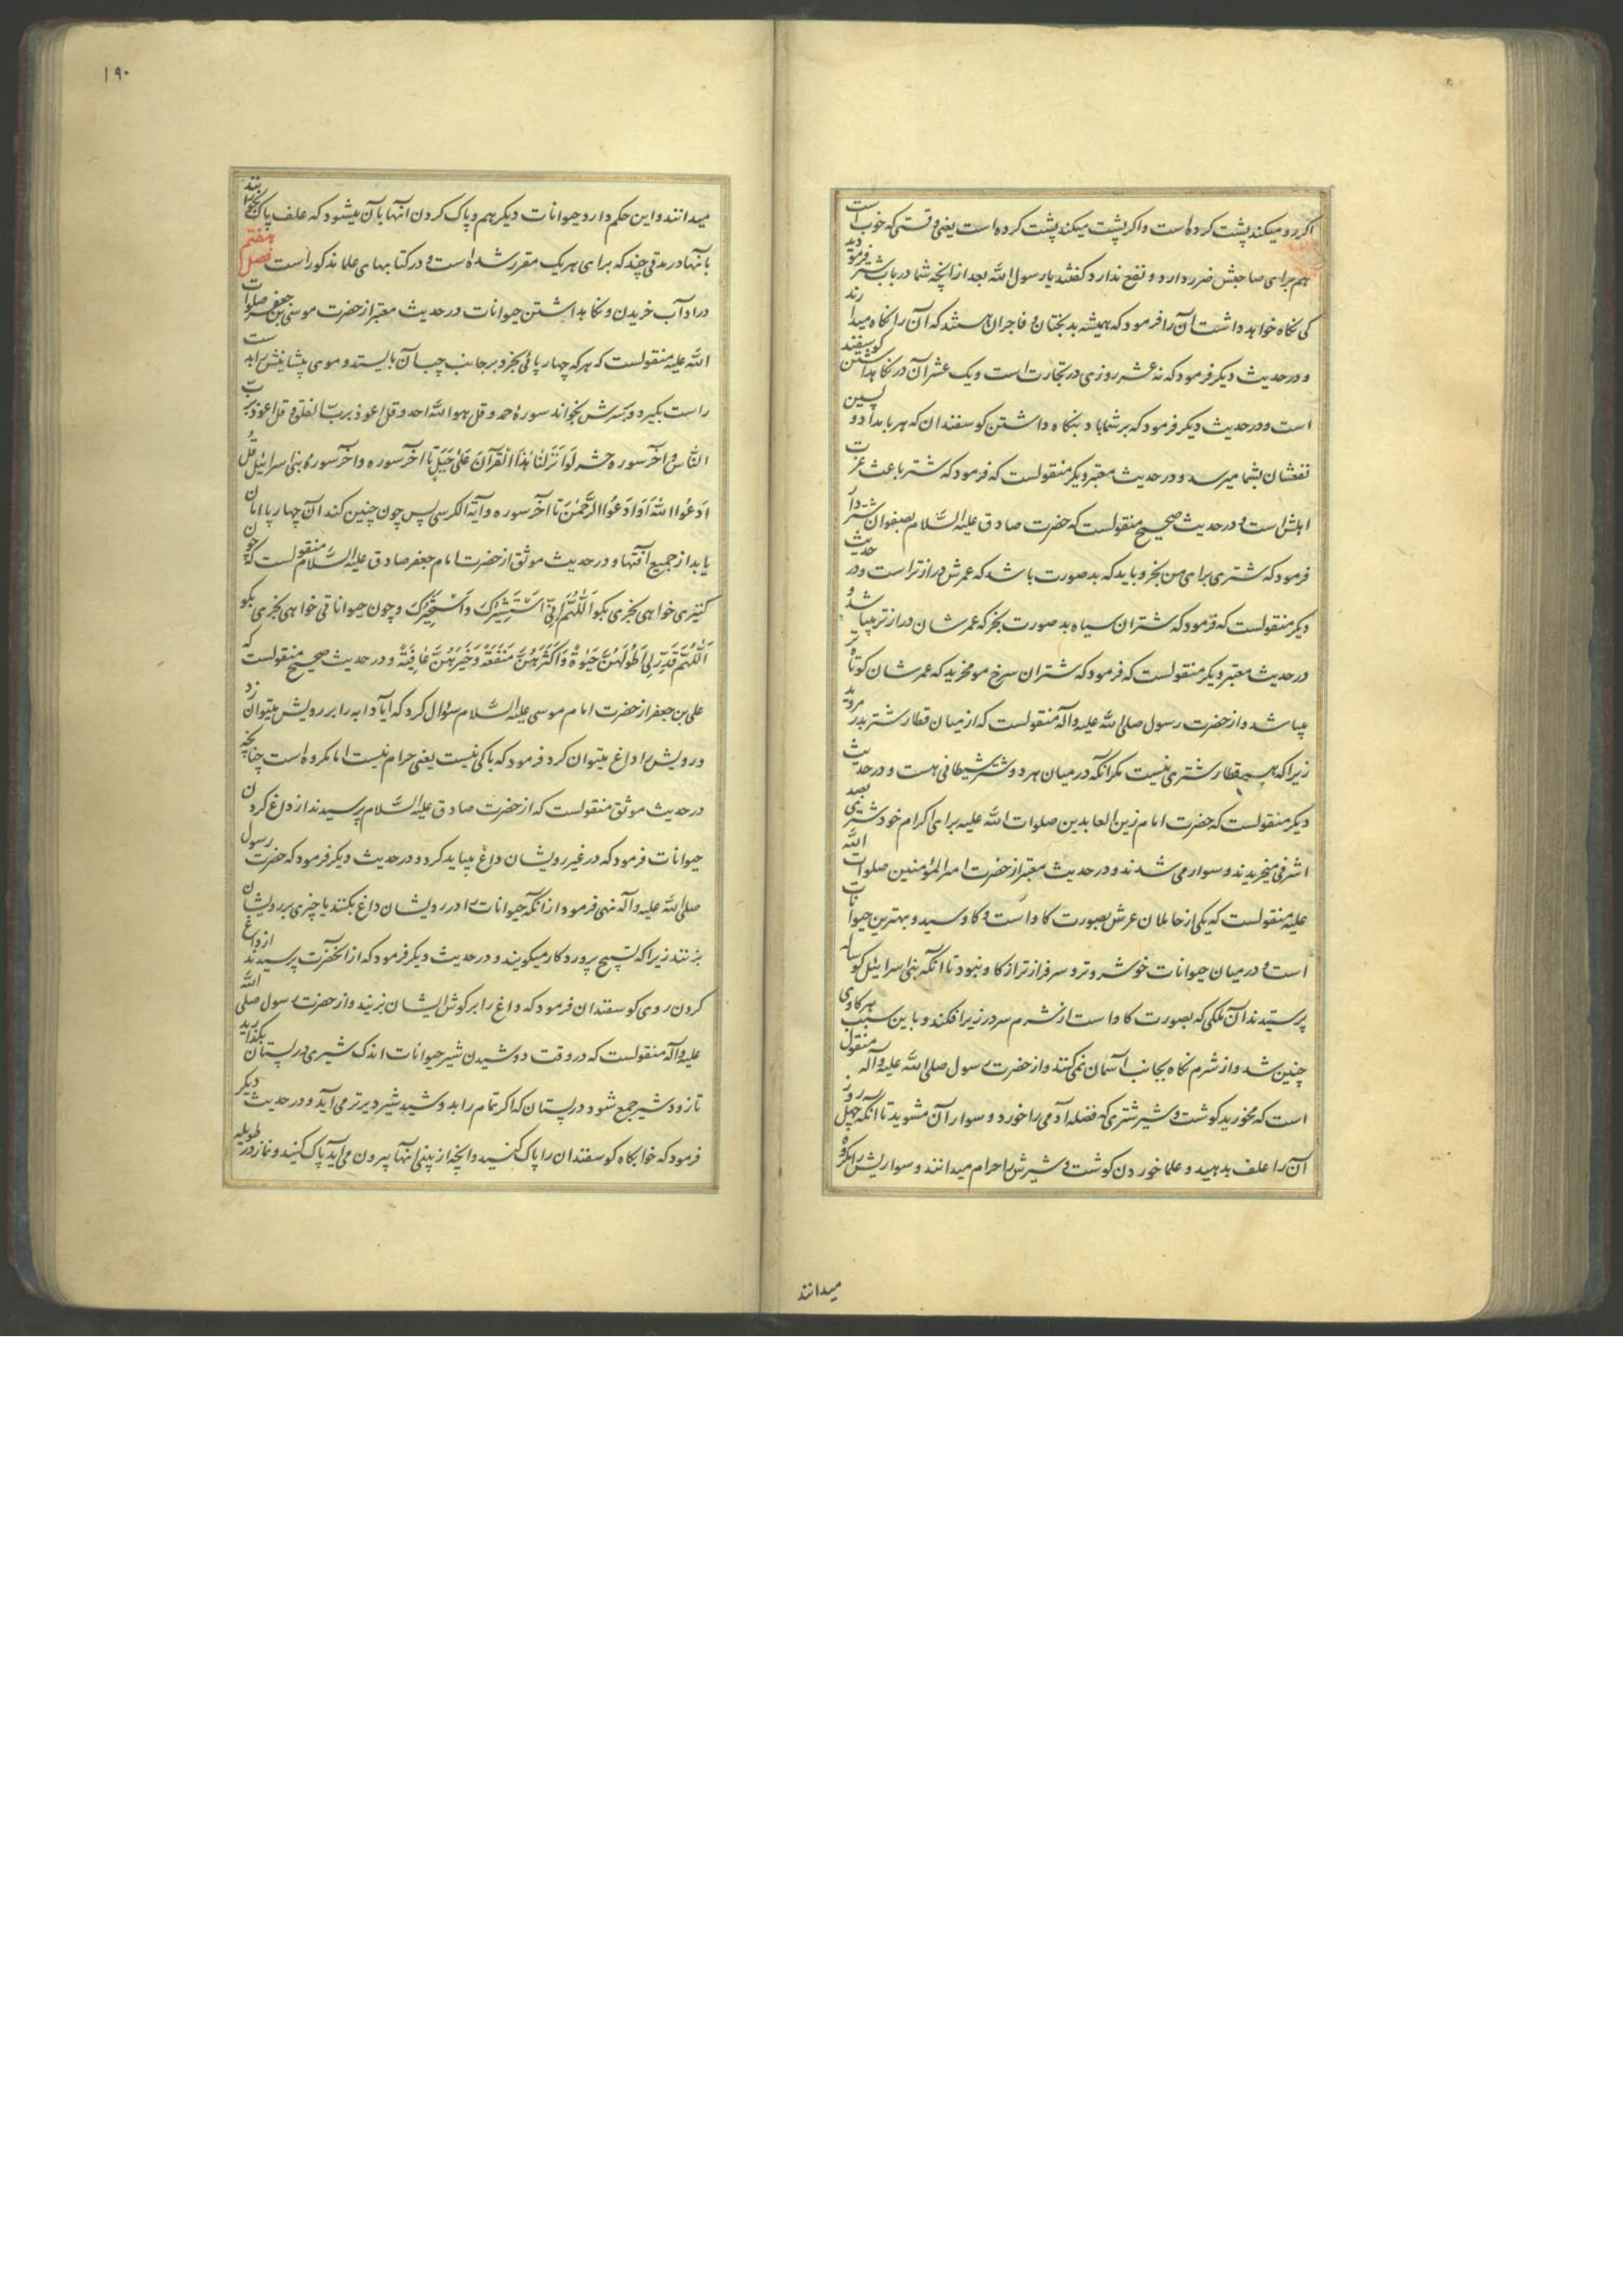 اکر رو میکند پشت کرده است و اکر پشت میکند پشت کرده است یعنی وقتی که خوب است
هم برای صاحبش ضرر دارد و نفع ندارد کفتند یا رسول الله بعد از انچه شما در باب شتر فرمودید
کی نکاه خواهد داشت آن را فرمود که همیشه بدبختان و فاجران هستند که آن را نکاه میدارند
و در حدیث دیکر فرمود که نه عشر روزی در تجارت است و یک عشر آن در نکاهداشتن کوسفند
است و در حدیث دیکر فرمود که بر شما باد بنکاه داشتن کوسفندان که هر بامداد و پسین
نفعشان بشما میرسد و در حدیث معتبر دیکر منقولست که فرمود که شتر باعث عزت
اهلش است و در حدیث صحیح منقولست که حضرت صادق علیه السلام بصفوان شتردار
فرمود که شتری برای من بخر و باید که بد صورت باشد که عمرش درازتر است و در حدیث
دیکر منقولست که فرمود که شتران سیاه بد صورت بخر که عمرشان درازتر میباشد و
در حدیث معتبر دیکر منقولست که فرمود که شتران سرخ مو مخرید که عمرشان کوتاه تر
میباشد و از حضرت رسول صلی الله علیه و آله منقولست که از میان قطار شتر بدر مروید
زیرا که هیچ قطار شتری نیست مکر آنکه در میان هر دو شتر شیطانی هست و در حدیث
دیکر منقولست که حضرت امام زین العابدین صلوات الله علیه برای اکرام خود شتری بصد
اشرفی میخریدند و سوار می شدند و در حدیث معتبر از حضرت امیر المؤمنین صلوات الله
علیه منقولست که یکی از حاملان عرش بصورت کاو است و کاو سید و بهترین حیوانات
است و در میان حیوانات خوشروتر و سرفرازتر از کاو نبود تا آنکه بنی اسرائیل کوساله
پرستیدند آن ملکی که بصورت کاو است از شرم سر در زیر افکند و باین سبب هر کاوی
چنین شد و از شرم نکاه بجانب آسمان نمی کنند و از حضرت رسول صلی الله علیه و آله منقول
است که مخورید کوشت و شیر شتری که فضله آدمی را خورد و سوار آن مشوید تا آنکه چهل روز
آن را علف بدهید و علما خوردن کوشت و شیرش را حرام میدانند و سواریش را مکروه
میدانند
١٩٠
میدانند و این حکم دارد حیوانات دیکر هم و پاک کردن آنها بآن میشود که علف پاک بخورانند
بآنها در مدتی چند که برای هر یک مقرر شده است و در کتابهای علما مذکور است فصل هفتم
در اداب خریدن و نکاهداشتن حیوانات در حدیث معتبر از حضرت موسی بن جعفر صلوات
الله علیه منقولست که هر که چهارپائی بخرد بر جانب چپ آن بایستد و موی پیشانیش را بدست
راست بکیرد و بر سرش بخواند سوره حمد و قل هو الله احد و قل اعوذ برب الفلق و قل اعوذ برب
الناس و آخر سوره حشر لَوْ اَنْزَلْنا هٰذَا الْقُرآنَ عَلیٰ جَبَلٍ تا آخر سوره و آخر سوره بنی اسرائیل قُلِ
ادْعُوا اللّٰهَ اَوِ ادْعُوا الرَّحْمٰنَ تا آخر سوره و آیة الکرسی پس چون چنین کند آن چهارپا امان
یابد از جمیع آفتها و در حدیث موثق از حضرت امام جعفر صادق علیه السلام منقولست که چون
کنیزی خواهی بخری بکو اَللّٰهُمَّ اِنّی اَسْتَشیرُکَ وَاَسْتَخیرُکَ و چون حیواناتی خواهی بخری بکو
اَللّٰهُمَّ قَدِّرْ لی اَطْوَلَهُنَّ حَیٰوةً وَاَکْثَرَهُنَّ مَنْفَعَةً وَخَیْرَهُنَّ عاقِبَةً و در حدیث صحیح منقولست که
علی بن جعفر از حضرت امام موسی علیه السلام سؤال کرد که آیا دابه را بر رویش میتوان زد
و رویش را داغ میتوان کرد فرمود که باکی نیست یعنی حرام نیست اما مکروه است چنانچه
در حدیث موثق منقولست که از حضرت صادق علیه السلام پرسیدند از داغ کردن
حیوانات فرمود که در غیر رویشان داغ میباید کرد و در حدیث دیکر فرمود که حضرت رسول
صلی الله علیه و آله نهی فرمود از آنکه حیوانات را در رویشان داغ بکنند یا چیزی بر رویشان
بزنند زیرا که تسبیح پروردکار میکویند و در حدیث دیکر فرمود که از آنحضرت پرسیدند از داغ
کردن روی کوسفندان فرمود که داغ را بر کوش ایشان بزنید و از حضرت رسول صلی الله
علیه و آله منقولست که در وقت دوشیدن شیر حیوانات اندک شیری در پستان بکذارید
تا زود شیر جمع شود در پستان که اکر تمام را بدوشید شیر دیرتر می آید و در حدیث دیکر
فرمود که خوابکاه کوسفندان را پاک کنید و انچه از بینی آنها بیرون می آید پاک کنید و نماز در طویله